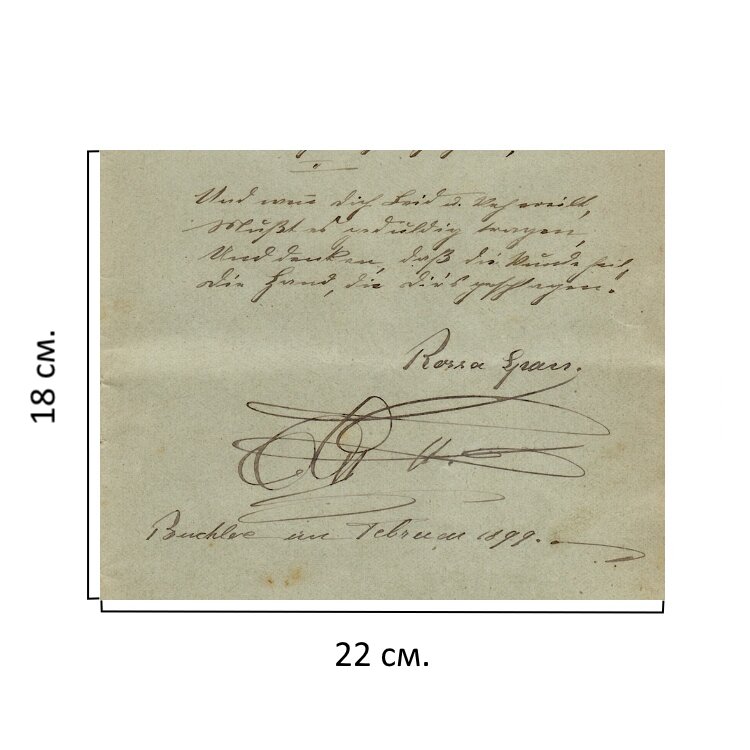 Und wenn dich Leid u. Weh ereilt,
Mußt es geduldig tragen,
Und denken, daß die Wunde heilt,
Die Hand, die dir's geschlagen.
Rossa
Buchloe im Februar 1899.
18 см.
22 см.